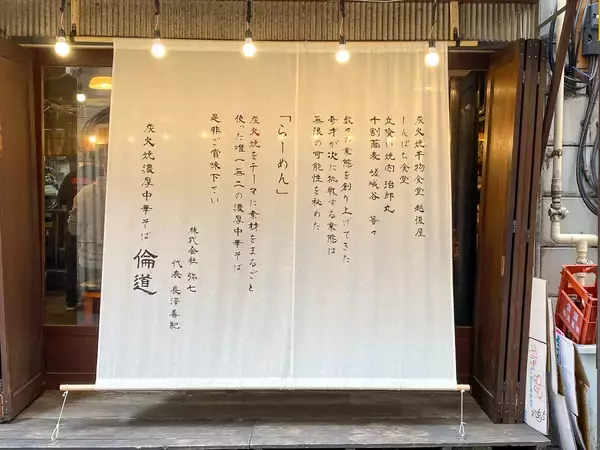 炭火焼干物食堂 越後屋
しんぱち食堂
立喰い焼肉 治郎丸
十割蕎麦 嵯峨谷 等々
数々の業態を創り上げてきた
鬼才が次に挑戦する業態は
無限の可能性を秘めた
「らーめん」
炭火焼をテーマに素材をまるごと
使った唯一無二の濃厚中華そば
是非ご賞味下さい
株式会社 弥七
代表 長澤善紀
炭火焼濃厚中華そば 倫道